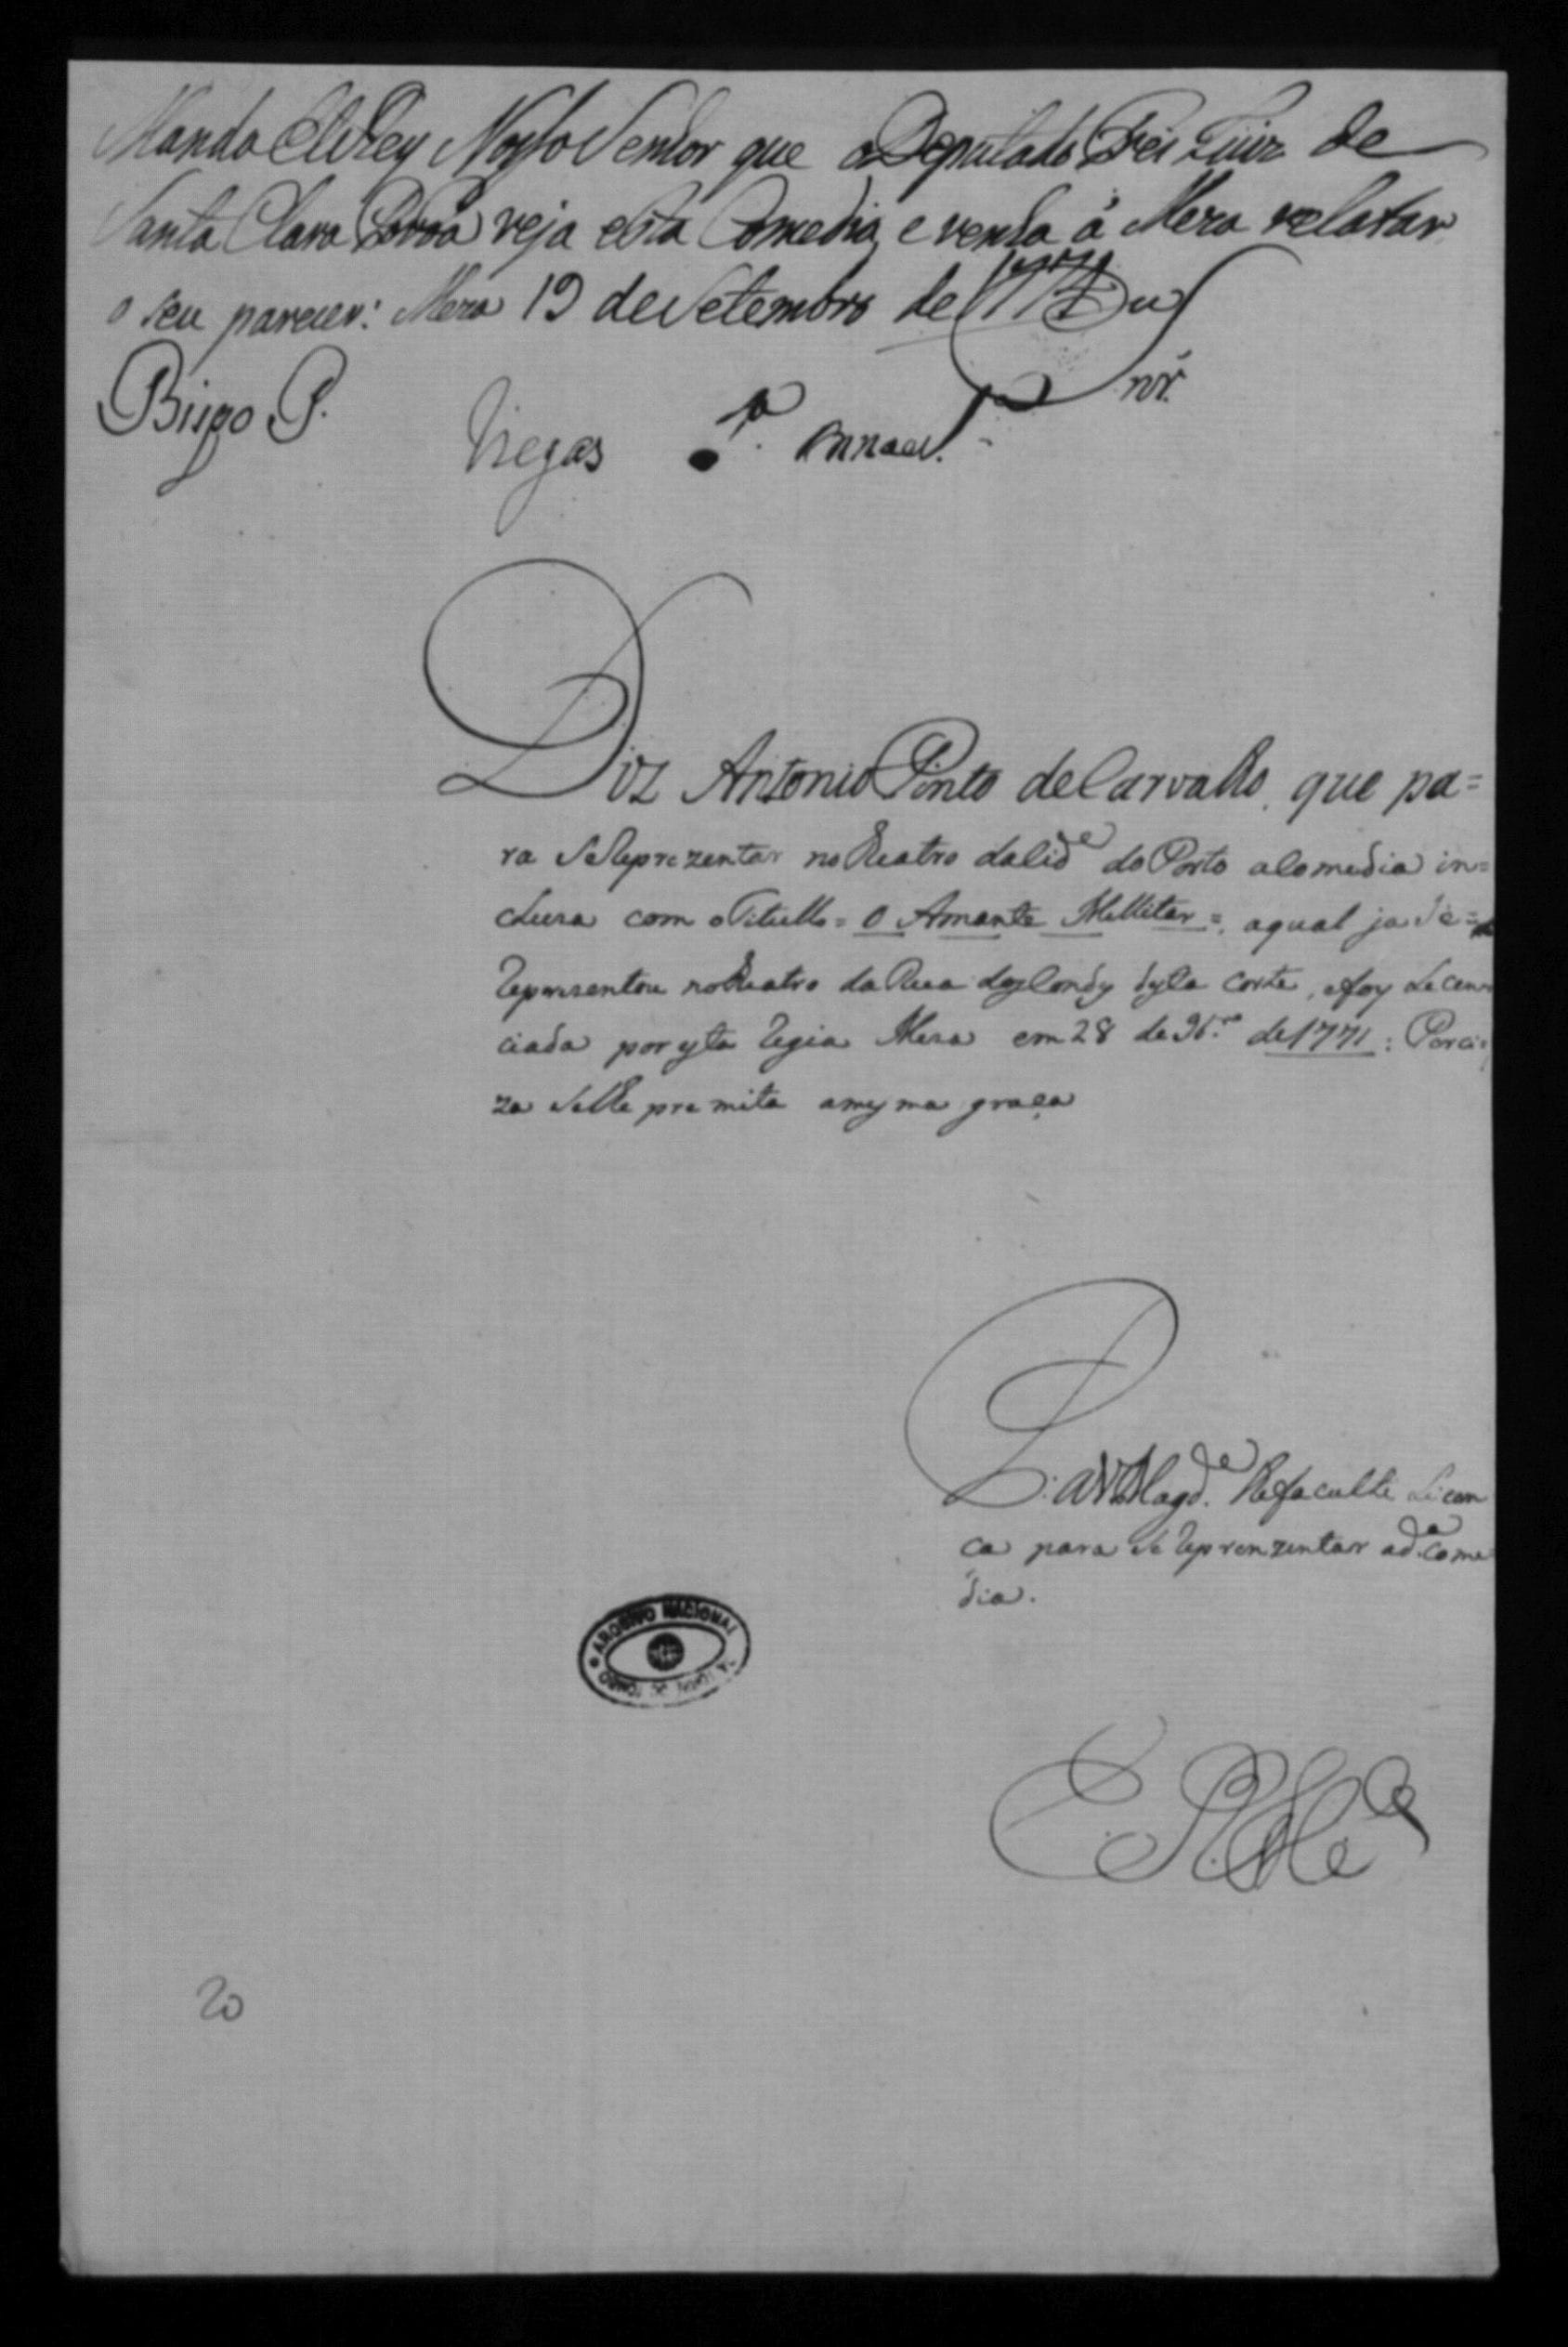 Manda ElRey Nosso Senhor que o Deputado Frei Luiz de
Santa Clara Povoa veja esta Comedia, e venha á Meza relatar
o seu parecer: Meza 19 de Setembro de
Bispo P.
Viegas
Snr.
Diz Antonio Pinto de Carvalho, que pa=
ra se Reprezentar no theatro da Cide. do Porto a Comedia in=
cluza com o Titullo = O Amante Millitar =, a qual ja Se=
Reprezentou no theatro da Rua dos Condes desta Corte, e foy Licen=
ciada por esta Regia Meza em 28 de 9bro. de 1771: Preci=
za se lhe premita a mesma graça
P. a V. Magde. lhe faculte Licen
ca para se Reprenzentar a da. Come
dia.
E. R. Mce.
ARQUIVO NACIONAL
DA TORRE DO TOMBO
20